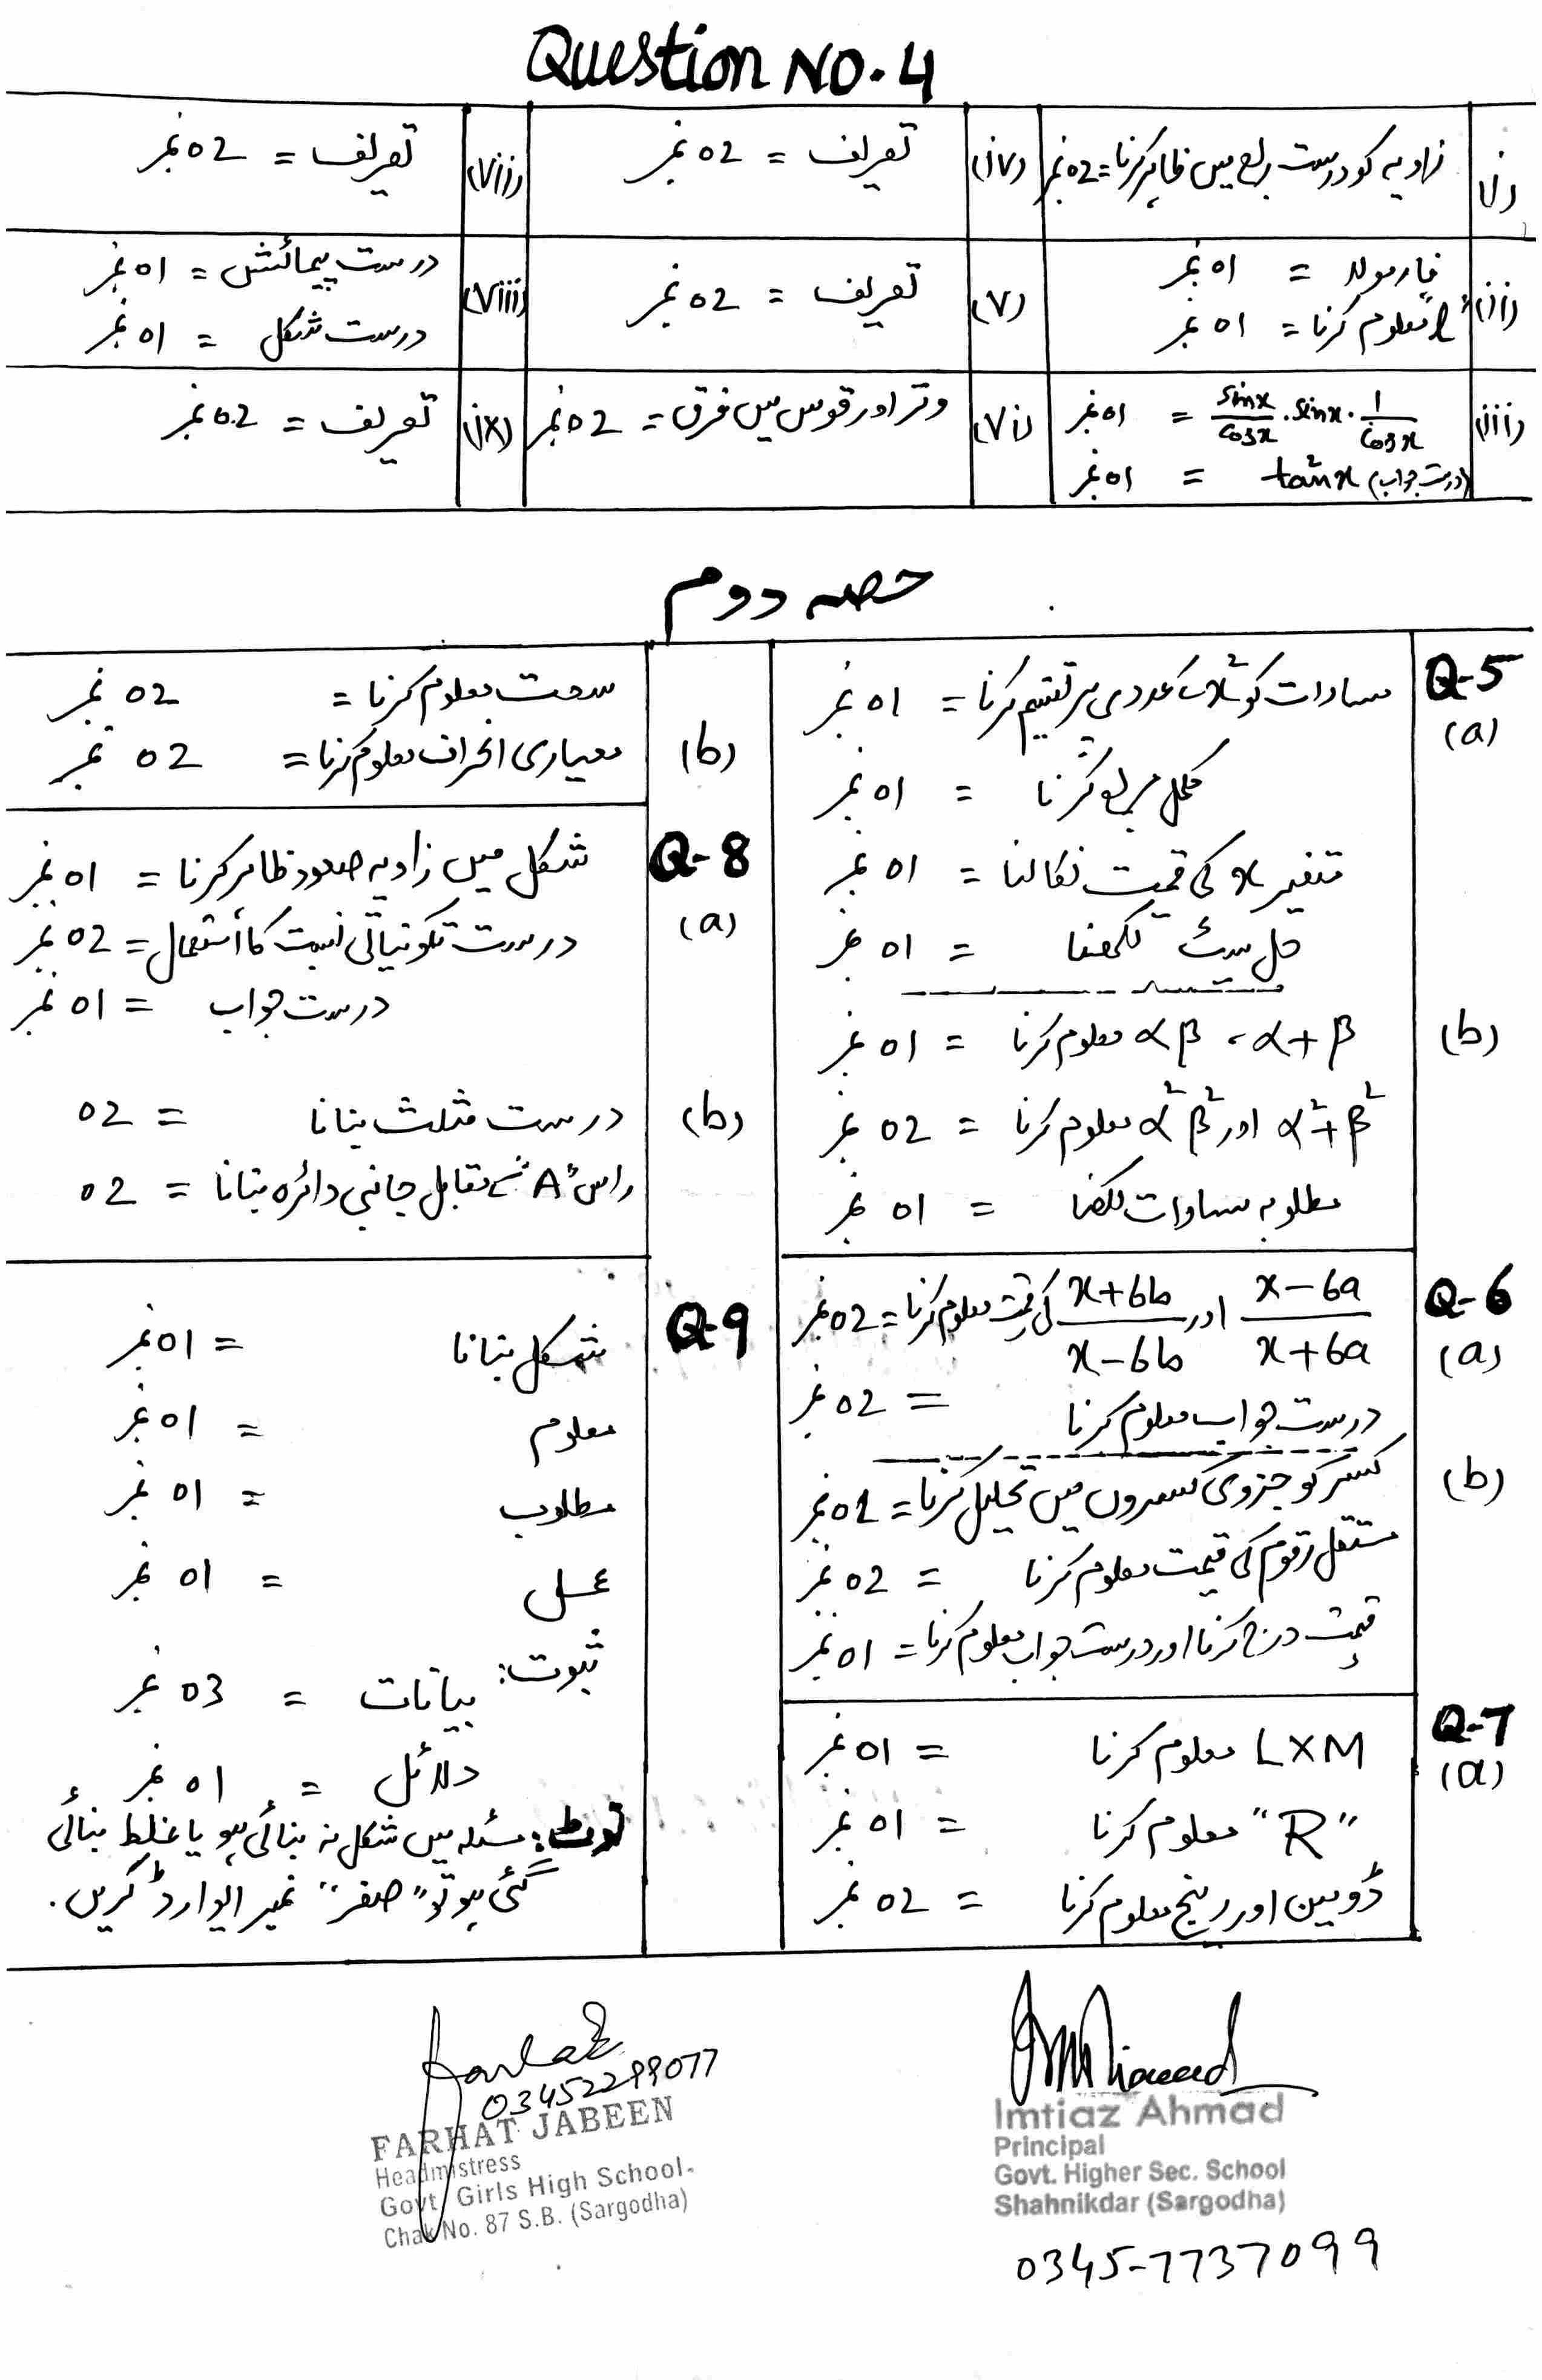 Question NO. 4
(i) زاویہ کو درست ربع میں ظاہر کرنا = 02 نمبر
(iv) تعریف = 02 نمبر
(vii) تعریف = 02 نمبر
(ii) فارمولہ = 01 نمبر
"l" معلوم کرنا = 01 نمبر
(v) تعریف = 02 نمبر
(viii) درست پیمائش = 01 نمبر
درست شکل = 01 نمبر
(iii) sinx/cosx . sinx . 1/cosx = 01 نمبر
(درست جواب) tan²x = 01 نمبر
(vi) وتر اور قوس میں فرق = 02 نمبر
(ix) تعریف = 02 نمبر
حصہ دوم
Q-5
(a) مساوات کو x² کے عددی سر تقسیم کرنا = 01 نمبر
مکمل مربع کرنا = 01 نمبر
متغیر x کی قیمت نکالنا = 01 نمبر
حل سیٹ لکھنا = 01 نمبر
(b) α+β ، αβ معلوم کرنا = 01 نمبر
α²+β² اور α²β² معلوم کرنا = 02 نمبر
مطلوبہ مساوات لکھنا = 01 نمبر
Q-6
(a) x-6a/x+6a اور x+6b/x-6b کی قیمت معلوم کرنا = 02 نمبر
درست جواب معلوم کرنا = 02 نمبر
(b) کسر کو جزوی کسروں میں تحلیل کرنا = 01 نمبر
مستقل رقوم کی قیمت معلوم کرنا = 02 نمبر
قیمت درج کرنا اور درست جواب معلوم کرنا = 01 نمبر
Q-7
(a) L×M معلوم کرنا = 01 نمبر
"R" معلوم کرنا = 01 نمبر
ڈومین اور رینج معلوم کرنا = 02 نمبر
(b) سمت معلوم کرنا = 02 نمبر
معیاری انحراف معلوم کرنا = 02 نمبر
Q-8
(a) شکل میں زاویہ صعود ظاہر کرنا = 01 نمبر
درست تکونیاتی نسبت کا استعمال = 02 نمبر
درست جواب = 01 نمبر
(b) درست مثلث بنانا = 02
راس "A" کے مقابل جانبی دائرہ بنانا = 02
Q-9
شکل بنانا = 01 نمبر
معلوم = 01 نمبر
مطلوب = 01 نمبر
عمل = 01 نمبر
ثبوت: بیانات = 03 نمبر
دلائل = 01 نمبر
نوٹ: مسئلہ میں شکل نہ بنائی ہو یا غلط بنائی
گئی ہو تو "صفر" نمبر ایوارڈ کریں۔
03452299077
FARHAT JABEEN
Headmistress
Govt. Girls High School.
Chak No. 87 S.B. (Sargodha)
Imtiaz Ahmad
Principal
Govt. Higher Sec. School
Shahnikdar (Sargodha)
0345-7737099